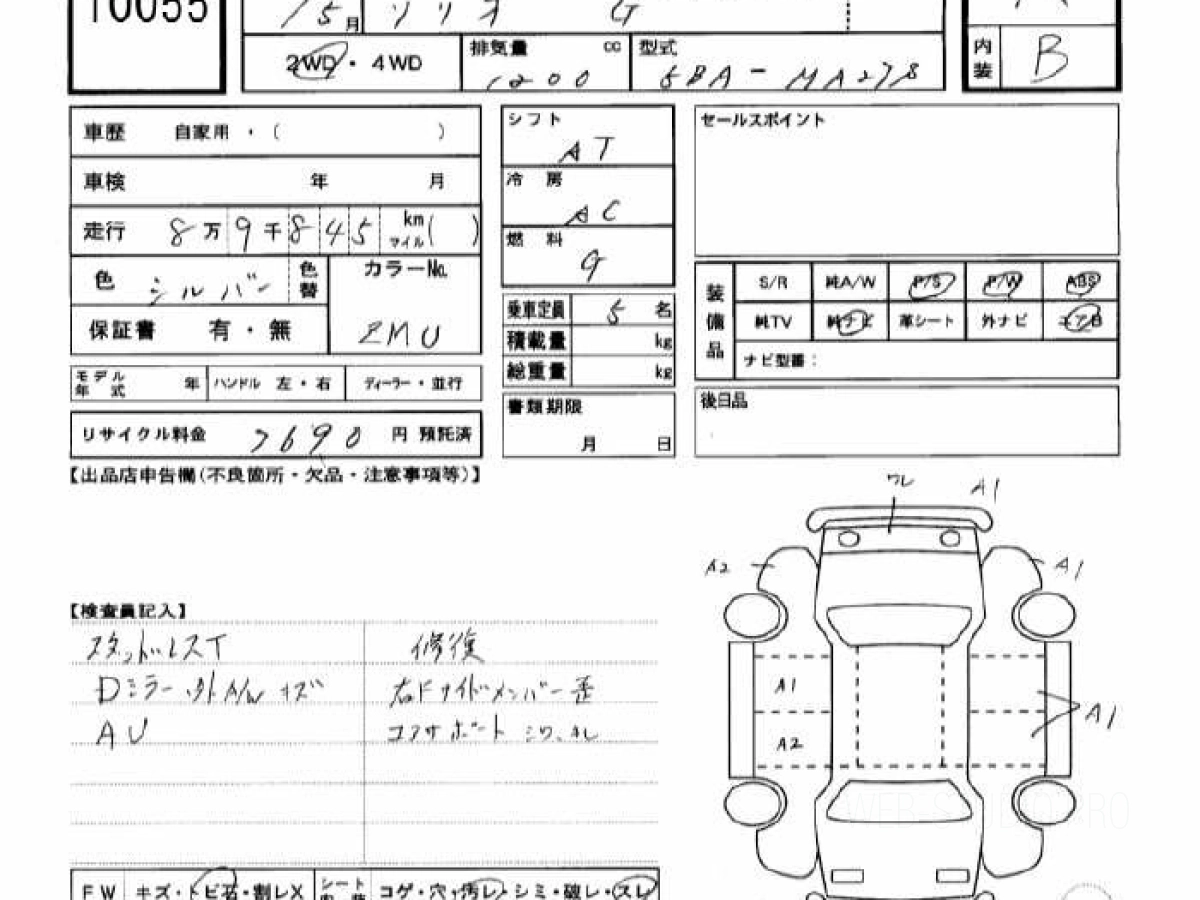 10055
15月 ソリオ G
2WD・4WD 排気量 cc 1200 型式 5BA-MA27S
内装 B
車歴 自家用・( )
車検 年 月
走行 8万9千845 km マイル( )
色 シルバー 色替 カラーNo. ZMU
保証書 有・無
モデル年式 年 ハンドル 左・右 ディーラー・並行
リサイクル料金 7690 円 預託済
シフト AT
冷房 AC
燃料 G
乗車定員 5 名
積載量 kg
総重量 kg
書類期限 月 日
セールスポイント
装備品 S/R 純A/W P/S P/W ABS
純TV 純ナビ 革シート 外ナビ エアB
ナビ型番:
後日品
【出品店申告欄(不良箇所・欠品・注意事項等)】
ワレ A1
A2 A1
A1
A2 A1
【検査員記入】
スタッドレスT 修復
Dミラー・外A/W キズ 右Fサイドメンバー歪
AU コアサポート
FW キズ・トビ石・割レX シート コゲ・穴・汚レ・シミ・破レ・スレ